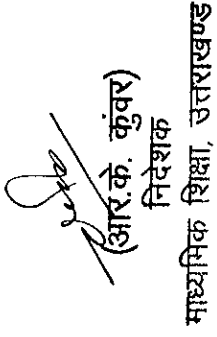 (आर.के. कुंवर)
निदेशक
माध्यमिक शिक्षा, उत्तराखण्ड